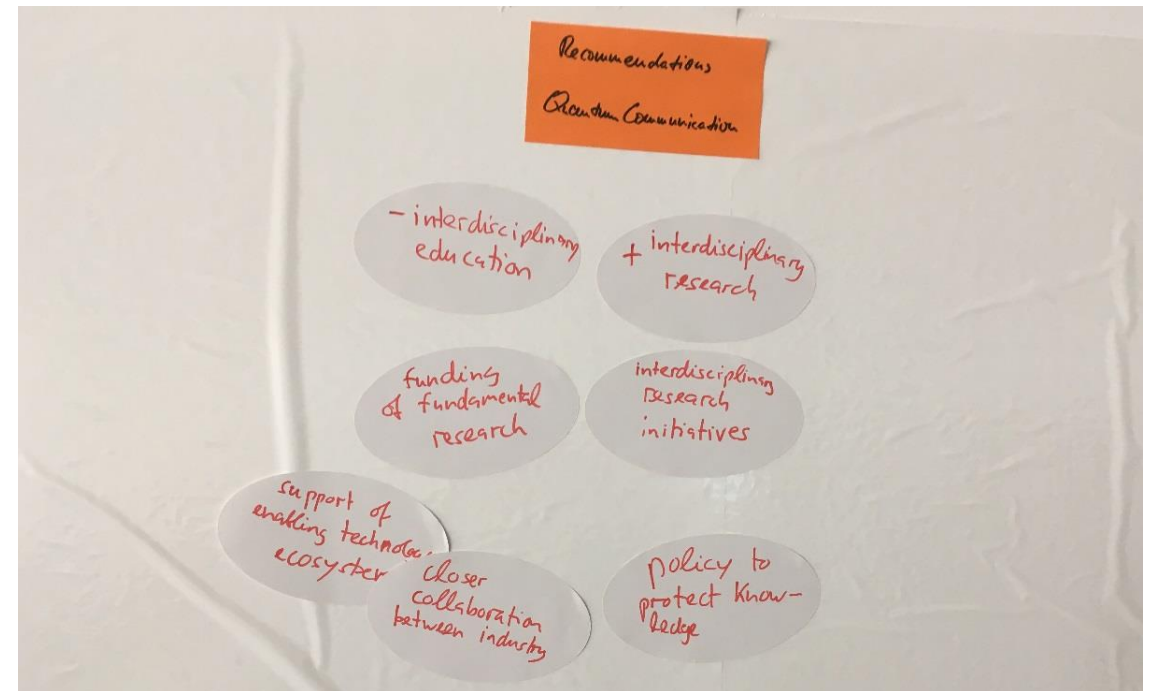 Recommendations
Quantum Communication
- interdisciplinary
education
+ interdisciplinary
research
funding
of fundamental
research
interdisciplinary
research
initiatives
support of
enabling technolo
ecosystem
closer
collaboration
between industry
policy to
protect know-
ledge